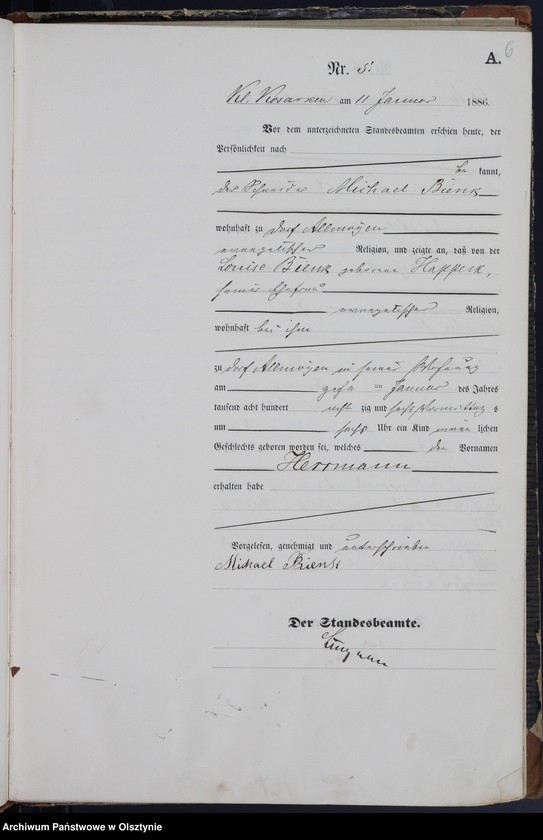 A.
6
Nr. 5.
Kl. Kosarken am 11 Januar 1886.
Vor dem unterzeichneten Standesbeamten erschien heute, der
Persönlichkeit nach
be kannt,
der Schneider Michael Bienk
wohnhaft zu Dorf Allmoyen
evangelischer Religion, und zeigte an, daß von der
Louise Bienk geborene Happeck,
seiner Ehefrau
evangelischer Religion,
wohnhaft bei ihm
zu Dorf Allmoyen in seiner Wohnung
am zehn ten Januar des Jahres
tausend acht hundert acht zig und sechs Vormittag s
um sechs Uhr ein Kind männ lichen
Geschlechts geboren worden sei, welches den Vornamen
Herrmann
erhalten habe
Vorgelesen, genehmigt und unterschrieben
Michael Bienk
Der Standesbeamte.
Archiwum Państwowe w Olsztynie